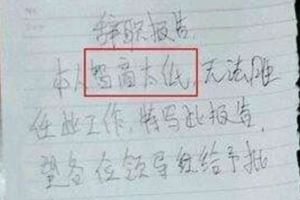 辞职报告
本人智商太低,无法胜
任此工作,特写此报告,
望各位领导能给予批